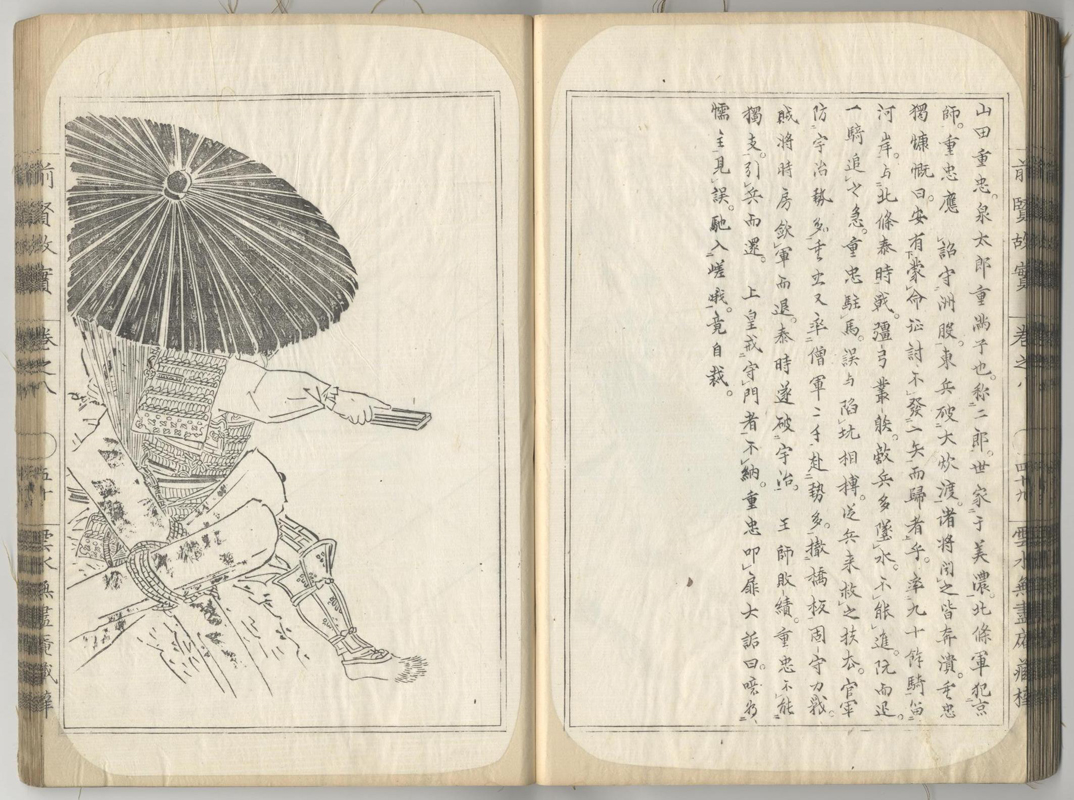 山田重忠。泉太郎重満子也。称二郎。世家于美濃。北條軍犯京
師。重忠應 詔守洲股。東兵破大炊渡。諸将聞之皆奔潰。重忠
獨慷慨曰。安有蒙命征討不發一矢而歸者乎。率九十餘騎留
河岸。与北條泰時戦。彊弓叢射。敵兵多墜水。不能進。既而退。
一騎追之急。重忠駐馬。誤与陥坑相搏。従兵来救之扶去。官軍
防宇治勢多。重忠又率僧軍二千赴勢多。撤橋板固守力戦。
賊将時房欽軍而退。泰時遂破宇治。 王師敗績。重忠不能
獨支。引兵而還。 上皇戒守門者不納。重忠叩扉大詬曰。噫為
懦主見誤。馳入嵯峨。竟自裁。
前賢故實 巻之八 四十九 雲水無盡庵藏梓
前賢故實 巻之八 五十 雲水無盡庵藏梓